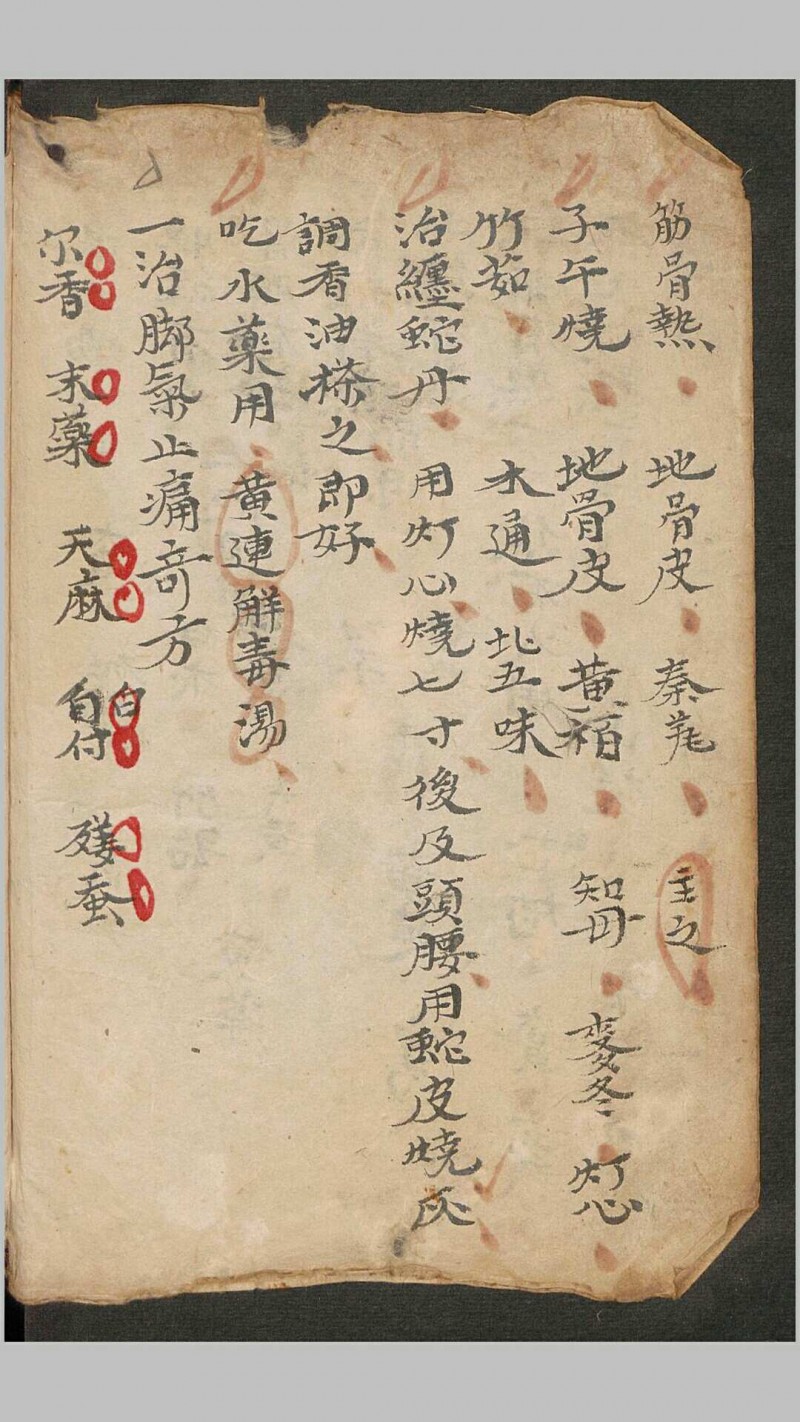 筋骨熱 地骨皮 秦艽 主之
子午燒 地骨皮 黄栢 知母 麥冬 灯心
竹茹 木通 北五味
治纏蛇丹 用灯心燒七寸後及頭腰用蛇皮燒灰
調香油搽之即好
吃水藥用 黃連解毒湯
一治脚氣止痛奇方
尔香 末藥 天麻 白付 姜蚕